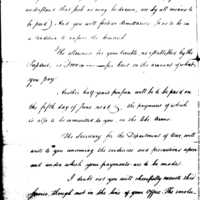 understood that so may be drawn, are by all means to
be paid) And you will forbear remittances, so as to be in
a condition to answer the demand.
The allowance for your trouble as established by the
President, is Two per Cent on the amount of what
you pay.
Another half years pension will be to be paid on
the fifth day of June next, the payment of which
is also to be committed to you on the like terms.
The Secretary for the Department of War, will
write to you concerning the evidences and precautions upon
and under which your payments are to be made.
I doubt not you will chearfully execute this
service though not in the line of your Office. The